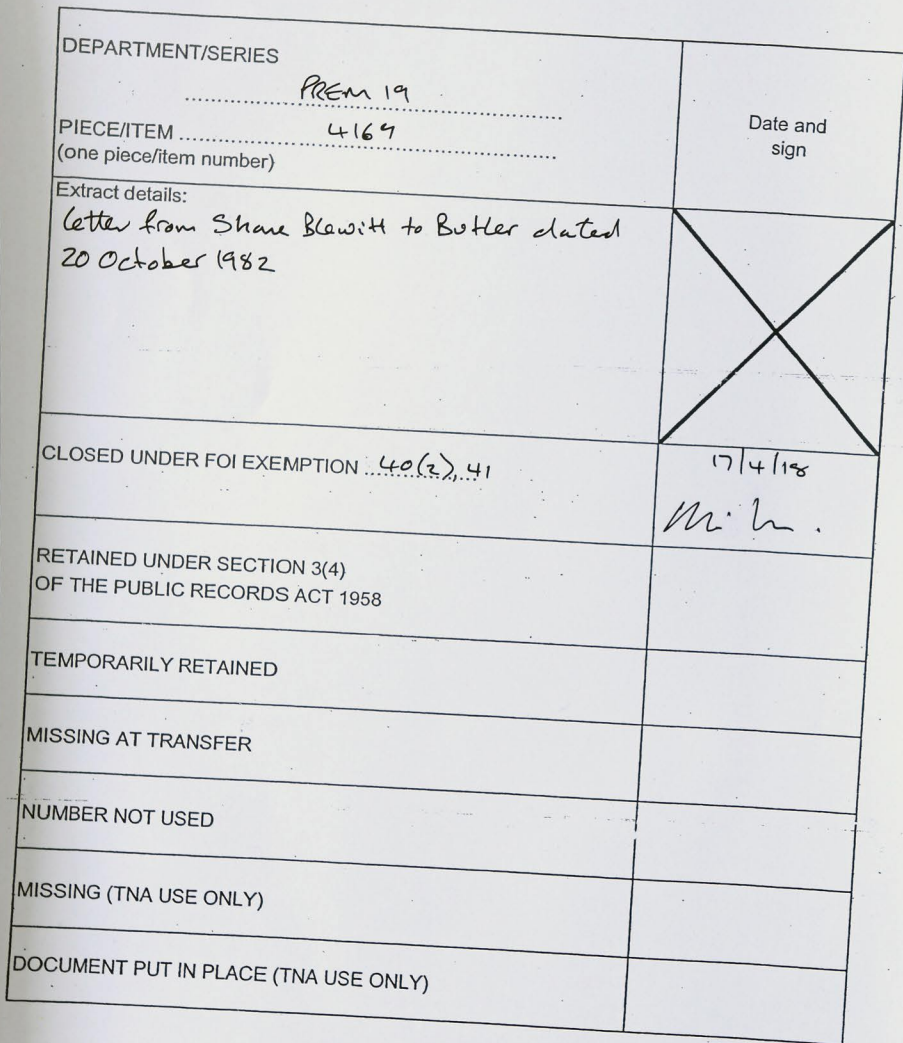 DEPARTMENT/SERIES
PREM 19
PIECE/ITEM 4169
(one piece/item number)
Date and
sign
Extract details:
Letter from Shane Blewitt to Butler dated
20 October 1982
CLOSED UNDER FOI EXEMPTION 40(2), 41
17/4/18
RETAINED UNDER SECTION 3(4)
OF THE PUBLIC RECORDS ACT 1958
TEMPORARILY RETAINED
MISSING AT TRANSFER
NUMBER NOT USED
MISSING (TNA USE ONLY)
DOCUMENT PUT IN PLACE (TNA USE ONLY)